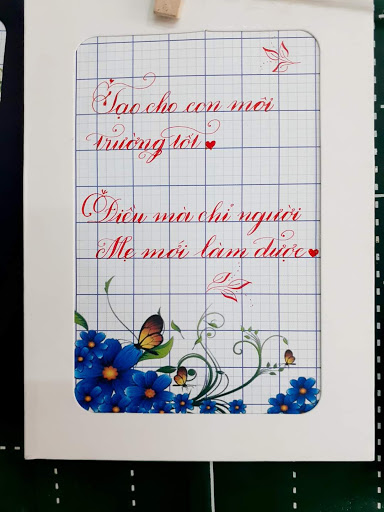 Tạo cho con môi
trường tốt
Điều mà chỉ người
Mẹ mới làm được